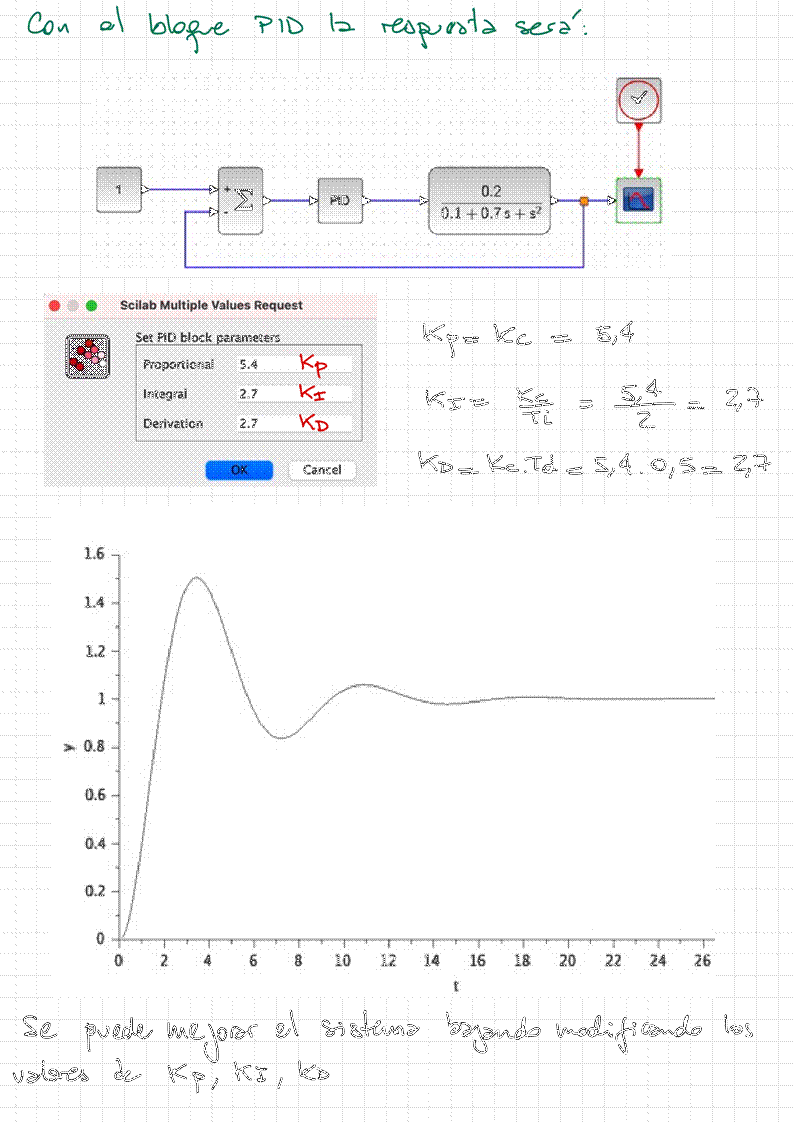 Con el bloque PID la respuesta será:
1
+
-
Σ
PID
0.2
0.1 + 0.7 s + s²
Scilab Multiple Values Request
Set PID block parameters
Proportional 5.4 Kp
Integral 2.7 KI
Derivation 2.7 KD
OK Cancel
Kp = Kc = 5,4
KI = Kc/Ti = 5,4/2 = 2,7
KD = Kc.Td = 5,4 . 0,5 = 2,7
1.6
1.4
1.2
1
0.8
y
0.6
0.4
0.2
0
0 2 4 6 8 10 12 14 16 18 20 22 24 26
t
Se puede mejorar el sistema bajando modificando los
valores de Kp, KI, KD